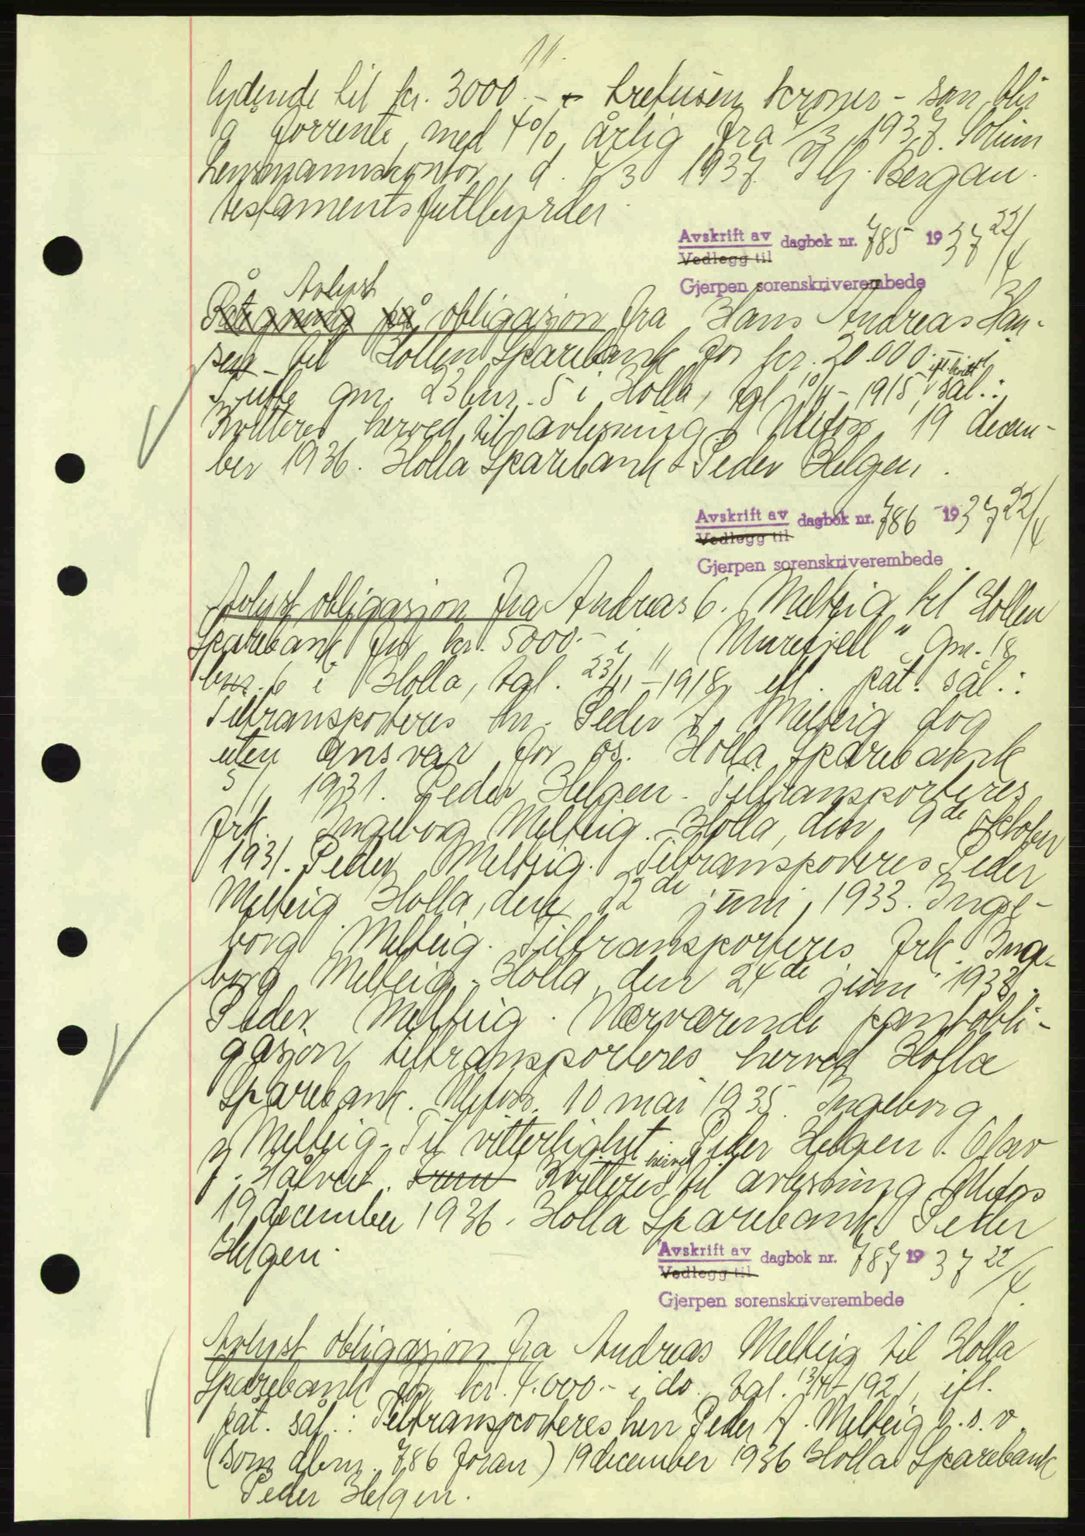 11.
lydende til kr. 3000.- - tretusen kroner - som blir
å forrente med 4% årlig fra 4/3 1937. Solum
lensmannskontor, d. 4/3 1937 Th. Bergan.
testamentsfullbyrder.
Avskrift av dagbok nr. 785 1937 22/4
Vedlegg til
Gjerpen sorenskriverembede
Avlyst
Påtegning på obligasjon fra Hans Andreas Han-
sen til Hollen Sparebank for kr. 20.000.-
gnr. 23 bnr. 5 i Holla, tgl. 1915, ifl. påt. sål.:
Kvitteres herved til avlysning. Ulefos, 19 decem-
ber 1936. Holla Sparebank Peder Helgen.
Avskrift av dagbok nr. 786 1937 22/4
Vedlegg til
Gjerpen sorenskriverembede
Avlyst obligasjon fra Andreas C. Melteig til Hollen
Sparebank for kr. 5000.- i "Murefjell" gnr. 18
bnr. 6 i Holla, tgl. 23/11-1918, ifl. påt. sål.:
Tiltransporteres hr. Peder A. Melteig dog
uten ansvar for os. Holla Sparebank
1931. Peder Helgen. Tiltransporteres
frk. Ingeborg Melteig. Holla, den 9de oktober
1931. Peder Melteig. Tiltransporteres Peder
Melteig Holla, den 22de juni 1933. Inge-
borg Melteig. Tiltransporteres frk. Inge-
borg Melteig. Holla, den 24de juni 1933.
Peder Melteig. Nærværende pantobli-
gasjon tiltransporteres herved Holla
Sparebank. Ulefoss 10 mai 1935. Ingeborg
Melteig. Til vitterlighet: Peder Helgen. Olav
Kvitteres herved til avlysning Ulefos
19 december 1936. Holla Sparebank Peder
Helgen.
Avskrift av dagbok nr. 787 1937 22/4
Vedlegg til
Gjerpen sorenskriverembede
Avlyst obligasjon fra Andreas Melteig til Holla
Sparebank for kr. 4.000.- i do. tgl. 13/4-1921, ifl.
påt. sål.: Tiltransporteres herr Peder A. Melteig o.s.v.
(som dbnr. 786 foran) 19 december 1936 Holla Sparebank
Peder Helgen.